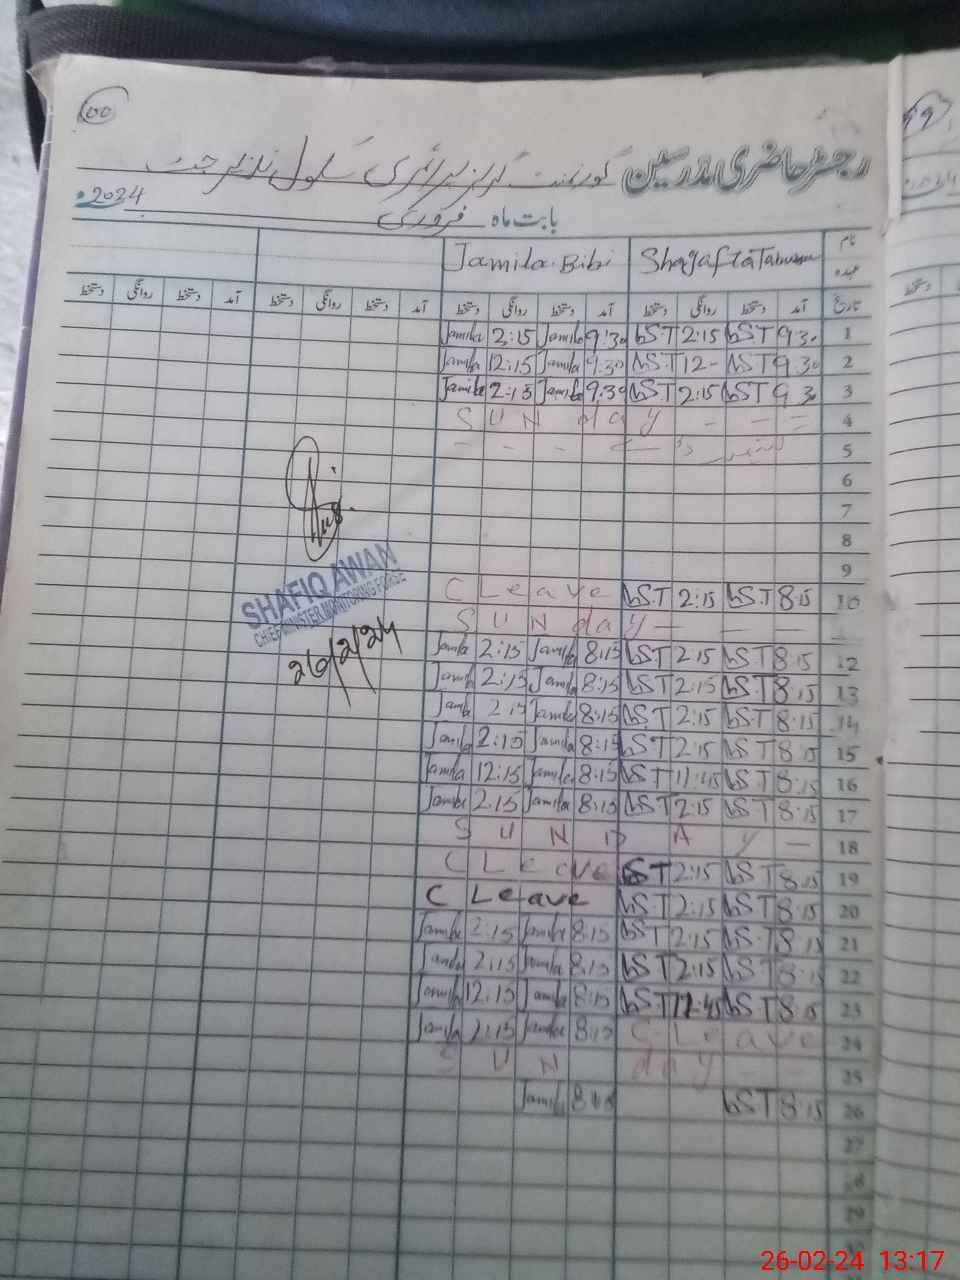 رجسٹر حاضری مدرسین گورنمنٹ گرلز پرائمری سکول
بابت ماہ فروری 2024
نام Shagafta Tabussum Jamila Bibi
عہدہ
تاریخ آمد دستخط روانگی دستخط آمد دستخط روانگی دستخط آمد دستخط روانگی دستخط آمد دستخط روانگی دستخط
Jamila 2:15 Jamila 9:30 bST 2:15 bST 9:30 1
Jamila 12:15 Jamila 9:30 bST 12- bST 9:30 2
Jamila 2:15 Jamila 9:30 bST 2:15 bST 9:30 3
SUN day - - = 4
5
6
7
8
9
C Leave bST 2:15 bST 8:15 10
SUN day - - -
Jamila 2:15 Jamila 8:15 bST 2:15 bST 8:15 12
Jamila 2:15 Jamila 8:15 bST 2:15 bST 8:15 13
Jamila 2:15 Jamila 8:15 bST 2:15 bST 8:15 14
Jamila 2:15 Jamila 8:15 bST 2:15 bST 8:15 15
Jamila 12:15 Jamila 8:15 bST 11:45 bST 8:15 16
Jamila 2:15 Jamila 8:15 bST 2:15 bST 8:15 17
SUNDAY - 18
C Leave bST 2:15 bST 8:15 19
C Leave bST 2:15 bST 8:15 20
Jamila 2:15 Jamila 8:15 bST 2:15 bST 8:15 21
Jamila 2:15 Jamila 8:15 bST 2:15 bST 8:15 22
Jamila 12:15 Jamila 8:15 bST 12:45 bST 8:15 23
Jamila 2:15 Jamila 8:15 C Leave 24
SUN day - - 25
Jamila 8:15 bST 8:15 26
27
28
29
SHAFIQ AWAN
CHIEF MINISTER MONITORING FORCE
26/2/24
26-02-24 13:17